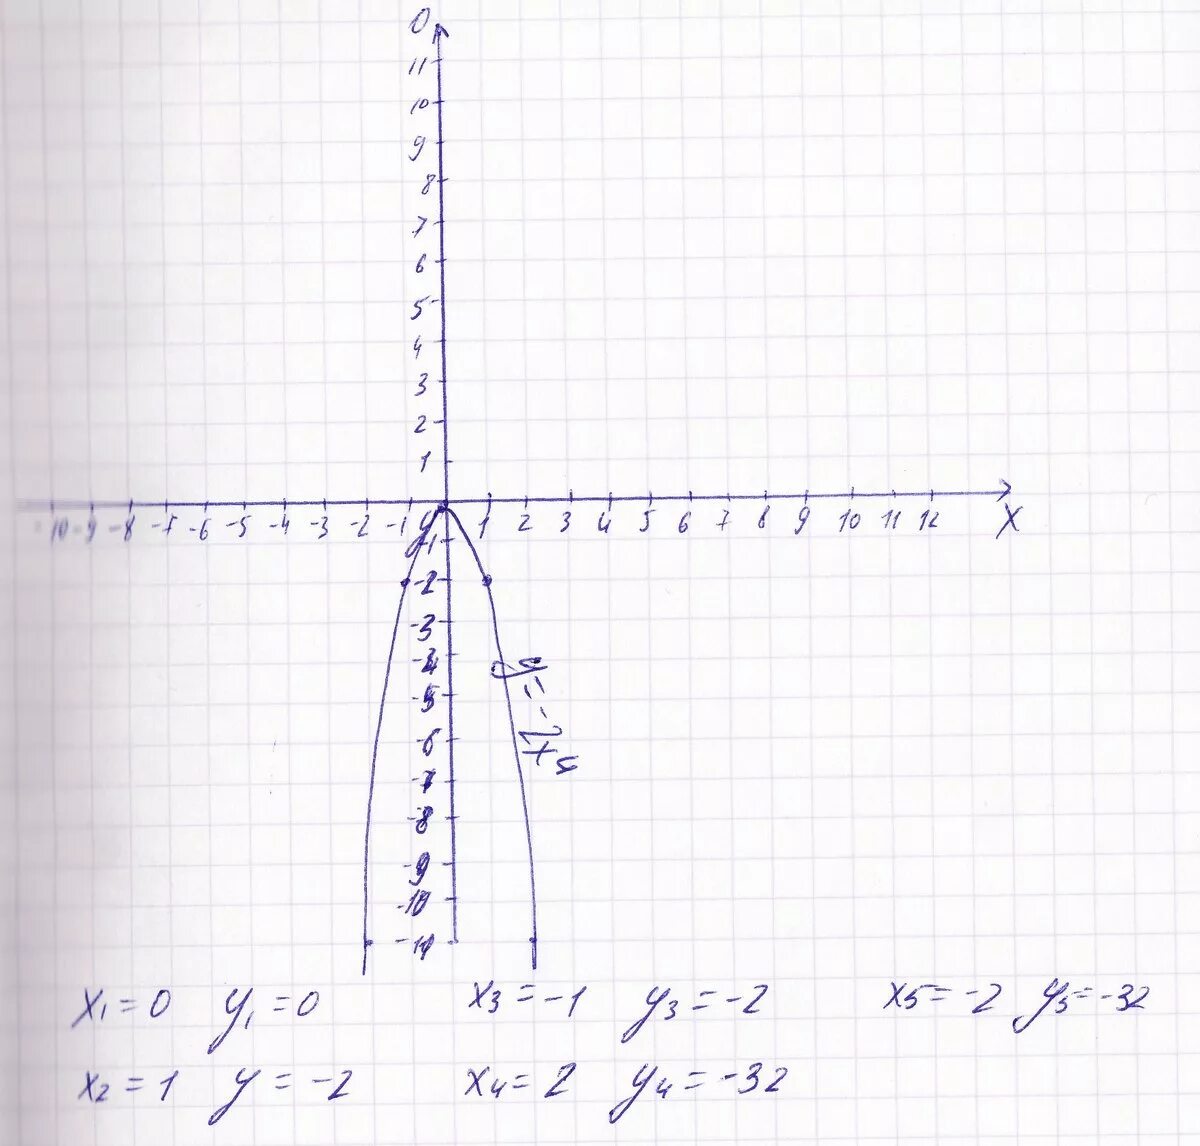 0
11
10
9
8
7
6
5
4
3
2
1
-10 -9 -8 -7 -6 -5 -4 -3 -2 -1 y 1 2 3 4 5 6 7 8 9 10 11 12 X
-1
-2
-3
-4
-5
-6
-7
-8
-9
-10
-11
x₁ = 0 y₁ = 0 x3 = -1 y3 = -2 x5 = -2 y5 = -32
x2 = 1 y = -2 x4 = 2 y4 = -32